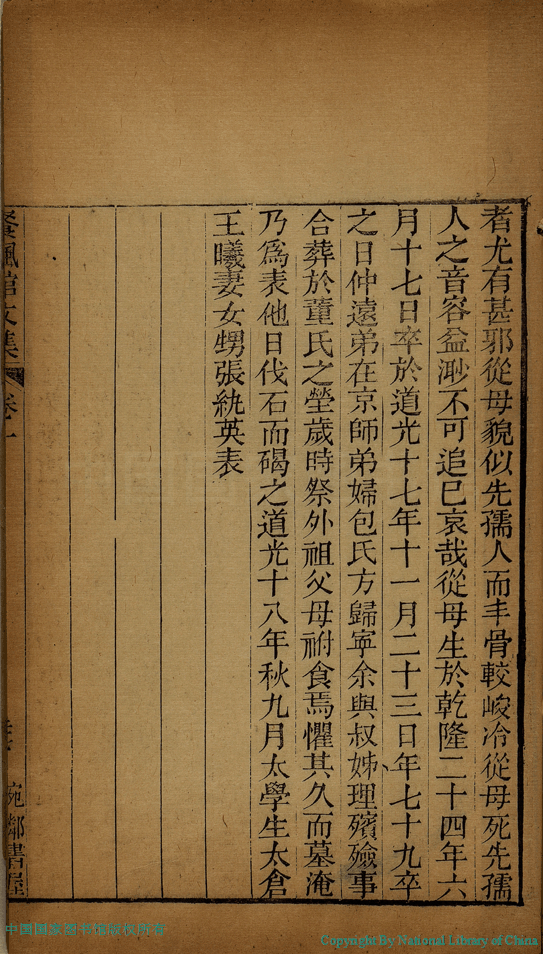 者尤有甚邪從母貌似先孺人而丰骨較峻冷從母死先孺
人之音容益渺不可追已哀哉從母生於乾隆二十四年六
月十七日卒於道光十七年十一月二十三日年七十九卒
之日仲遠弟在京師弟婦包氏方歸寧余與叔姊理殯殮事
合葬於董氏之塋歲時祭外祖父母祔食焉懼其久而墓淹
乃爲表他日伐石而碣之道光十八年秋九月太學生太倉
王曦妻女甥張紈英表
餐楓館文集 卷一
宛鄰書屋
中国国家图书馆版权所有
Copyright By National Library of China